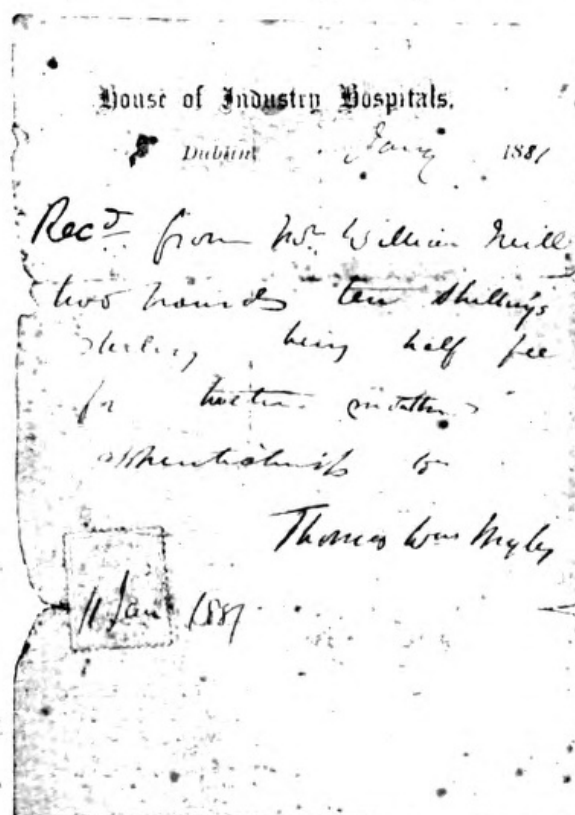 House of Industry Hospitals.
Dublin Jany 1881
Recd from Mr William Neill
two pounds ten shillings
sterling being half fee
for twelve months
apprenticeship
Thomas Wm
11 Jan 1881